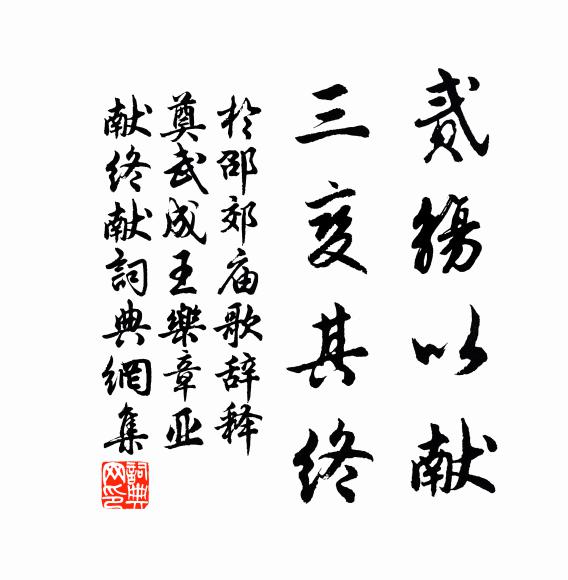 贰觞以献
三变其终
於邵郊庙歌辞释
奠武成王樂章亚
献终献詞典網集
詞典
网印